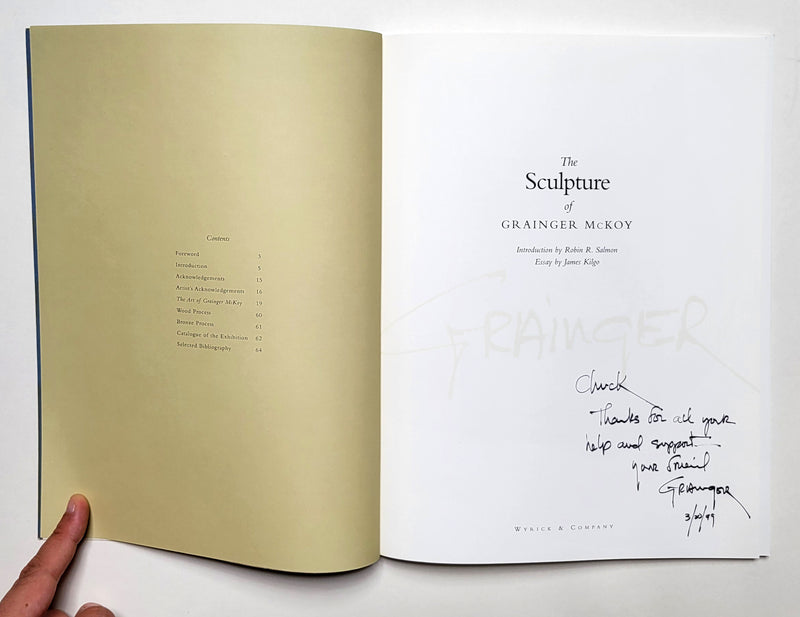 Contents
Foreword 3
Introduction 5
Acknowledgements 15
Artist's Acknowledgements 16
The Art of Grainger McKoy 19
Wood Process 60
Bronze Process 61
Catalogue of the Exhibition 62
Selected Bibliography 64
The
Sculpture
of
GRAINGER McKOY
Introduction by Robin R. Salmon
Essay by James Kilgo
GRAINGER
Chuck
Thanks for all your
help and support
your friend
GRAINGER
3/20/99
WYRICK & COMPANY